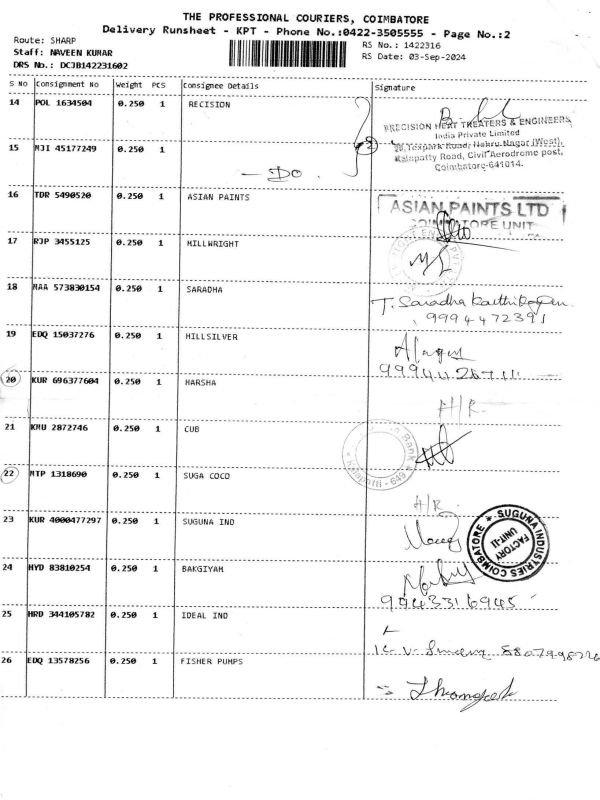 THE PROFESSIONAL COURIERS, COIMBATORE
Delivery Runsheet - KPT - Phone No.:0422-3505555 - Page No.:2
Route: SHARP
RS No.: 1422316
Staff: NAVEEN KUMAR
RS Date: 03-Sep-2024
DRS No.: DCJB142231602
S No Consignment No Weight PCS Consignee Details Signature
14 POL 1634504 0.250 1 RECISION
PRECISION HEAT TREATERS & ENGINEERS
India Private Limited
Road, Nehru Nagar (West),
Kalapatty Road, Civil Aerodrome post,
Coimbatore-641014.
15 MJI 45177249 0.250 1
- Do - 2
16 TDR 5490520 0.250 1 ASIAN PAINTS
ASIAN PAINTS LTD
COIMBATORE UNIT
17 RJP 3455125 0.250 1 MILLWRIGHT
18 MAA 573830154 0.250 1 SARADHA
T. Saradha Karthikeyan
9994472391
19 EDQ 15037276 0.250 1 HILLSILVER
20 KUR 696377604 0.250 1 HARSHA
H/R
21 KMU 2872746 0.250 1 CUB
Bank
22 MTP 1318690 0.250 1 SUGA COCO
H/R
23 KUR 4000477297 0.250 1 SUGUNA IND
SUGUNA INDUSTRIES COIMBATORE
FACTORY
UNIT-II
24 HYD 83810254 0.250 1 BAKGIYAM
9943316945
25 HRD 344105782 0.250 1 IDEAL IND
26 EDQ 13578256 0.250 1 FISHER PUMPS